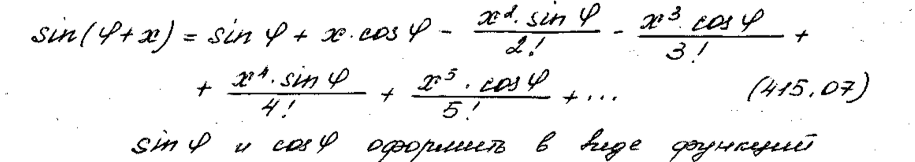 sin(φ+x) = sin φ + x·cos φ - x²·sin φ / 2! - x³·cos φ / 3! +
+ x⁴·sin φ / 4! + x⁵·cos φ / 5! + ... (415.07)
sin φ и cos φ оформить в виде функций